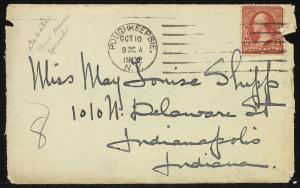 POUGHKEEPSIE,
OCT 10
N.Y.
Miss May Louise Shipp
1010 N. Delaware St
Indianapolis
Indiana.
8